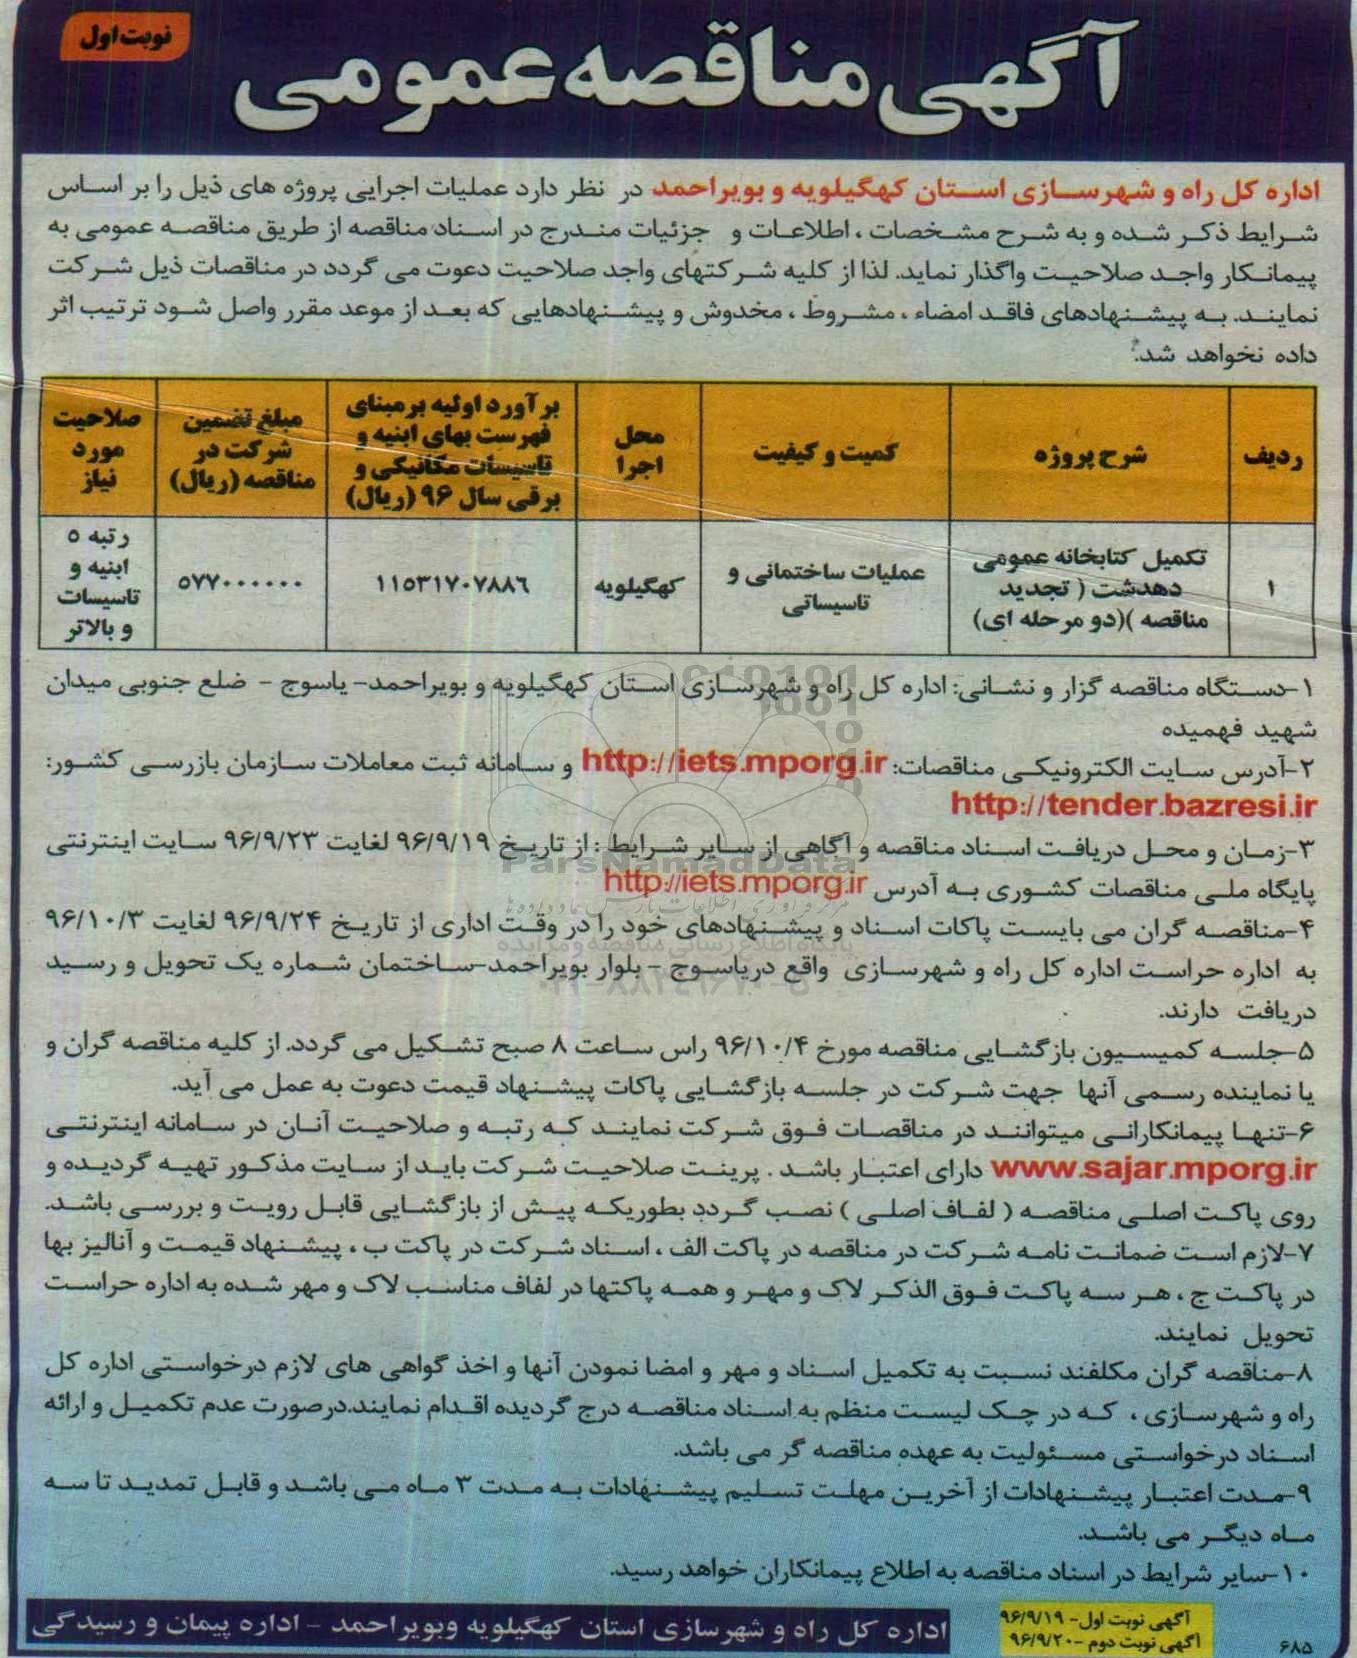 نوبت اول
آگهی مناقصه عمومی
اداره کل راه و شهرسازی استان کهگیلویه و بویراحمد در نظر دارد عملیات اجرایی پروژه های ذیل را بر اساس
شرایط ذکر شده و به شرح مشخصات ، اطلاعات و جزئیات مندرج در اسناد مناقصه از طریق مناقصه عمومی به
پیمانکار واجد صلاحیت واگذار نماید. لذا از کلیه شرکتهای واجد صلاحیت دعوت می گردد در مناقصات ذیل شرکت
نمایند. به پیشنهادهای فاقد امضاء ، مشروط ، مخدوش و پیشنهادهایی که بعد از موعد مقرر واصل شود ترتیب اثر
داده نخواهد شد.
ردیف
شرح پروژه
کمیت و کیفیت
محل
اجرا
برآورد اولیه برمبنای
فهرست بهای ابنیه و
تاسیسات مکانیکی و
برقی سال ۹۶ (ریال)
مبلغ تضمین
شرکت در
مناقصه (ریال)
صلاحیت
مورد
نیاز
۱
تکمیل کتابخانه عمومی
دهدشت ( تجدید
مناقصه )(دو مرحله ای)
عملیات ساختمانی و
تاسیساتی
کهگیلویه
۱۱۵۳۱۷۰۷۸۸۶
۵۷۷۰۰۰۰۰۰
رتبه ۵
ابنیه و
تاسیسات
و بالاتر
۱-دستگاه مناقصه گزار و نشانی: اداره کل راه و شهرسازی استان کهگیلویه و بویراحمد- یاسوج - ضلع جنوبی میدان
شهید فهمیده
۲-آدرس سایت الکترونیکی مناقصات: http://iets.mporg.ir و سامانه ثبت معاملات سازمان بازرسی کشور:
http://tender.bazresi.ir
۳-زمان و محل دریافت اسناد مناقصه و آگاهی از سایر شرایط : از تاریخ ۹۶/۹/۱۹ لغایت ۹۶/۹/۲۳ سایت اینترنتی
پایگاه ملی مناقصات کشوری به آدرس http://iets.mporg.ir
۴-مناقصه گران می بایست پاکات اسناد و پیشنهادهای خود را در وقت اداری از تاریخ ۹۶/۹/۲۴ لغایت ۹۶/۱۰/۳
به اداره حراست اداره کل راه و شهرسازی واقع دریاسوج - بلوار بویراحمد-ساختمان شماره یک تحویل و رسید
دریافت دارند.
۵-جلسه کمیسیون بازگشایی مناقصه مورخ ۹۶/۱۰/۴ راس ساعت ۸ صبح تشکیل می گردد. از کلیه مناقصه گران و
یا نماینده رسمی آنها جهت شرکت در جلسه بازگشایی پاکات پیشنهاد قیمت دعوت به عمل می آید.
۶-تنها پیمانکارانی میتوانند در مناقصات فوق شرکت نمایند که رتبه و صلاحیت آنان در سامانه اینترنتی
www.sajar.mporg.ir دارای اعتبار باشد . پرینت صلاحیت شرکت باید از سایت مذکور تهیه گردیده و
روی پاکت اصلی مناقصه ( لفاف اصلی ) نصب گردد بطوریکه پیش از بازگشایی قابل رویت و بررسی باشد.
۷-لازم است ضمانت نامه شرکت در مناقصه در پاکت الف ، اسناد شرکت در پاکت ب ، پیشنهاد قیمت و آنالیز بها
در پاکت ج ، هر سه پاکت فوق الذکر لاک و مهر و همه پاکتها در لفاف مناسب لاک و مهر شده به اداره حراست
تحویل نمایند.
۸-مناقصه گران مکلفند نسبت به تکمیل اسناد و مهر و امضا نمودن آنها و اخذ گواهی های لازم درخواستی اداره کل
راه و شهرسازی ، که در چک لیست منظم به اسناد مناقصه درج گردیده اقدام نمایند.درصورت عدم تکمیل و ارائه
اسناد درخواستی مسئولیت به عهده مناقصه گر می باشد.
۹-مدت اعتبار پیشنهادات از آخرین مهلت تسلیم پیشنهادات به مدت ۳ ماه می باشد و قابل تمدید تا سه
ماه دیگر می باشد.
۱۰-سایر شرایط در اسناد مناقصه به اطلاع پیمانکاران خواهد رسید.
آگهی نوبت اول- ۹۶/۹/۱۹
آگهی نوبت دوم -۹۶/۹/۲۰
۶۸۵
اداره کل راه و شهرسازی استان کهگیلویه وبویراحمد - اداره پیمان و رسیدگی
ParsNamadData
پایگاه اطلاع رسانی مناقصه و مزایده